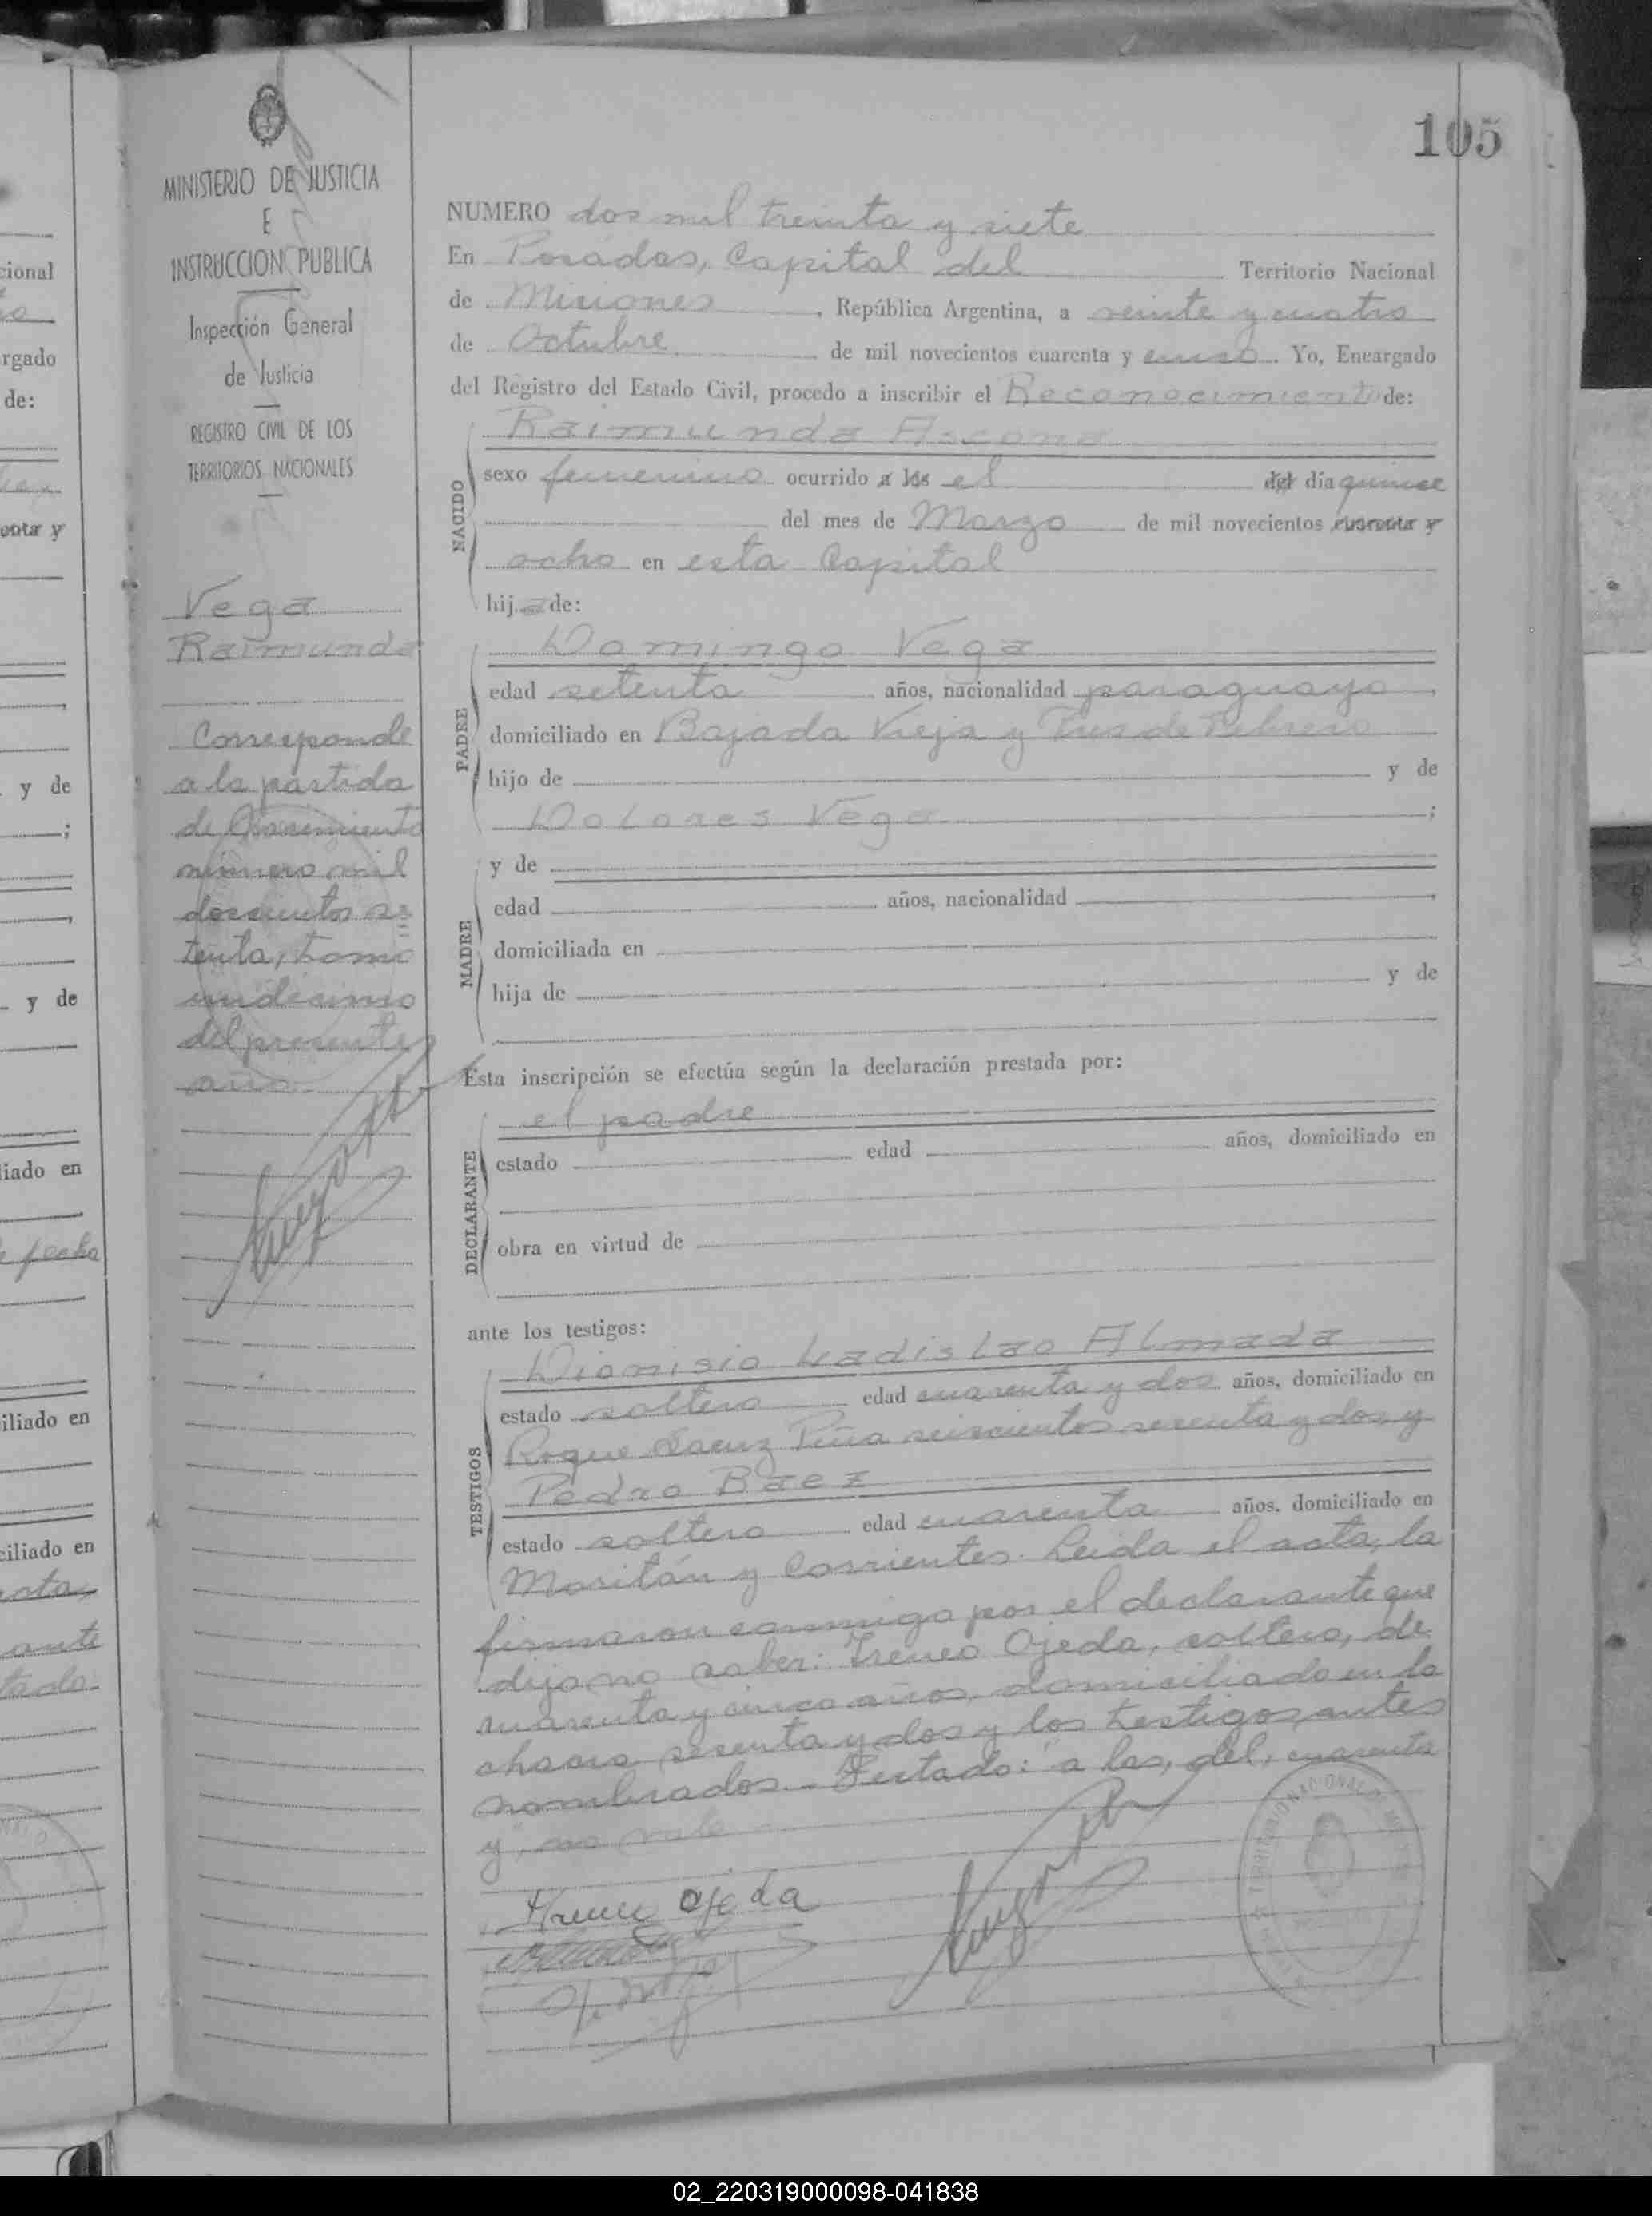 105
MINISTERIO DE JUSTICIA
E
INSTRUCCION PUBLICA
Inspección General
de Justicia
REGISTRO CIVIL DE LOS
TERRITORIOS NACIONALES
Vega
Raimunda
Corresponde
a la partida
de Nacimiento
número mil
doscientos se=
tenta, tomo
undécimo
del presente
año.
NUMERO dos mil treinta y siete
En Posadas, Capital del Territorio Nacional
de Misiones, República Argentina, a veinte y cuatro
de Octubre de mil novecientos cuarenta y cinco. Yo, Encargado
del Registro del Estado Civil, procedo a inscribir el Reconocimiento de:
NACIDO
Raimunda Ascona
sexo femenino ocurrido a las el del dia quince
del mes de Marzo de mil novecientos cuarenta y
ocho en esta Capital
hija de:
PADRE
Domingo Vega
edad setenta años, nacionalidad paraguayo,
domiciliado en Bajada Vieja y Tres de Febrero
hijo de y de
Dolores Vega;
MADRE
y de
edad años, nacionalidad
domiciliada en
hija de y de
Esta inscripción se efectúa según la declaración prestada por:
DECLARANTE
el padre
estado edad años, domiciliado en
obra en virtud de
ante los testigos:
TESTIGOS
Dionisio Ladislao Almada
estado soltero edad cuarenta y dos años, domiciliado en
Roque Saenz Peña seiscientos sesenta y dos y
Pedro Baez
estado soltero edad cuarenta años, domiciliado en
Moritán y Corrientes. Leida el acta, la
firmaron conmigo por el declarante que
dijo no saber: Ireneo Ojeda, soltero, de
cuarenta y cinco años, domiciliado en la
chacra sesenta y dos y los testigos antes
nombrados.- Testado: "a las, del, cuarenta
y", no vale
Ireneo Ojeda
cional
rgado
de:
y de
y de
liado en
fecha
iliado en
ciliado en
acta,
ante
tado
02_220319000098-041838